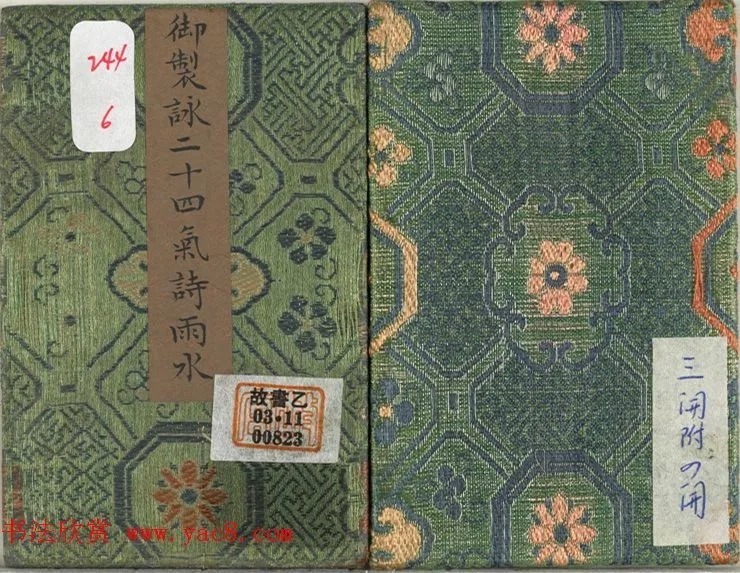 244
6
御製詠二十四氣詩雨水
故書乙
03·11
00823
三開附の開
书法欣赏 www.yac8.com